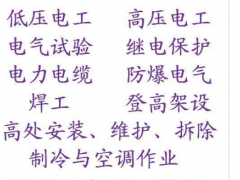 低压电工 高压电工
电气试验 继电保护
电力电缆 防爆电气
焊工 登高架设
高处安装、维护、拆除
制冷与空调作业